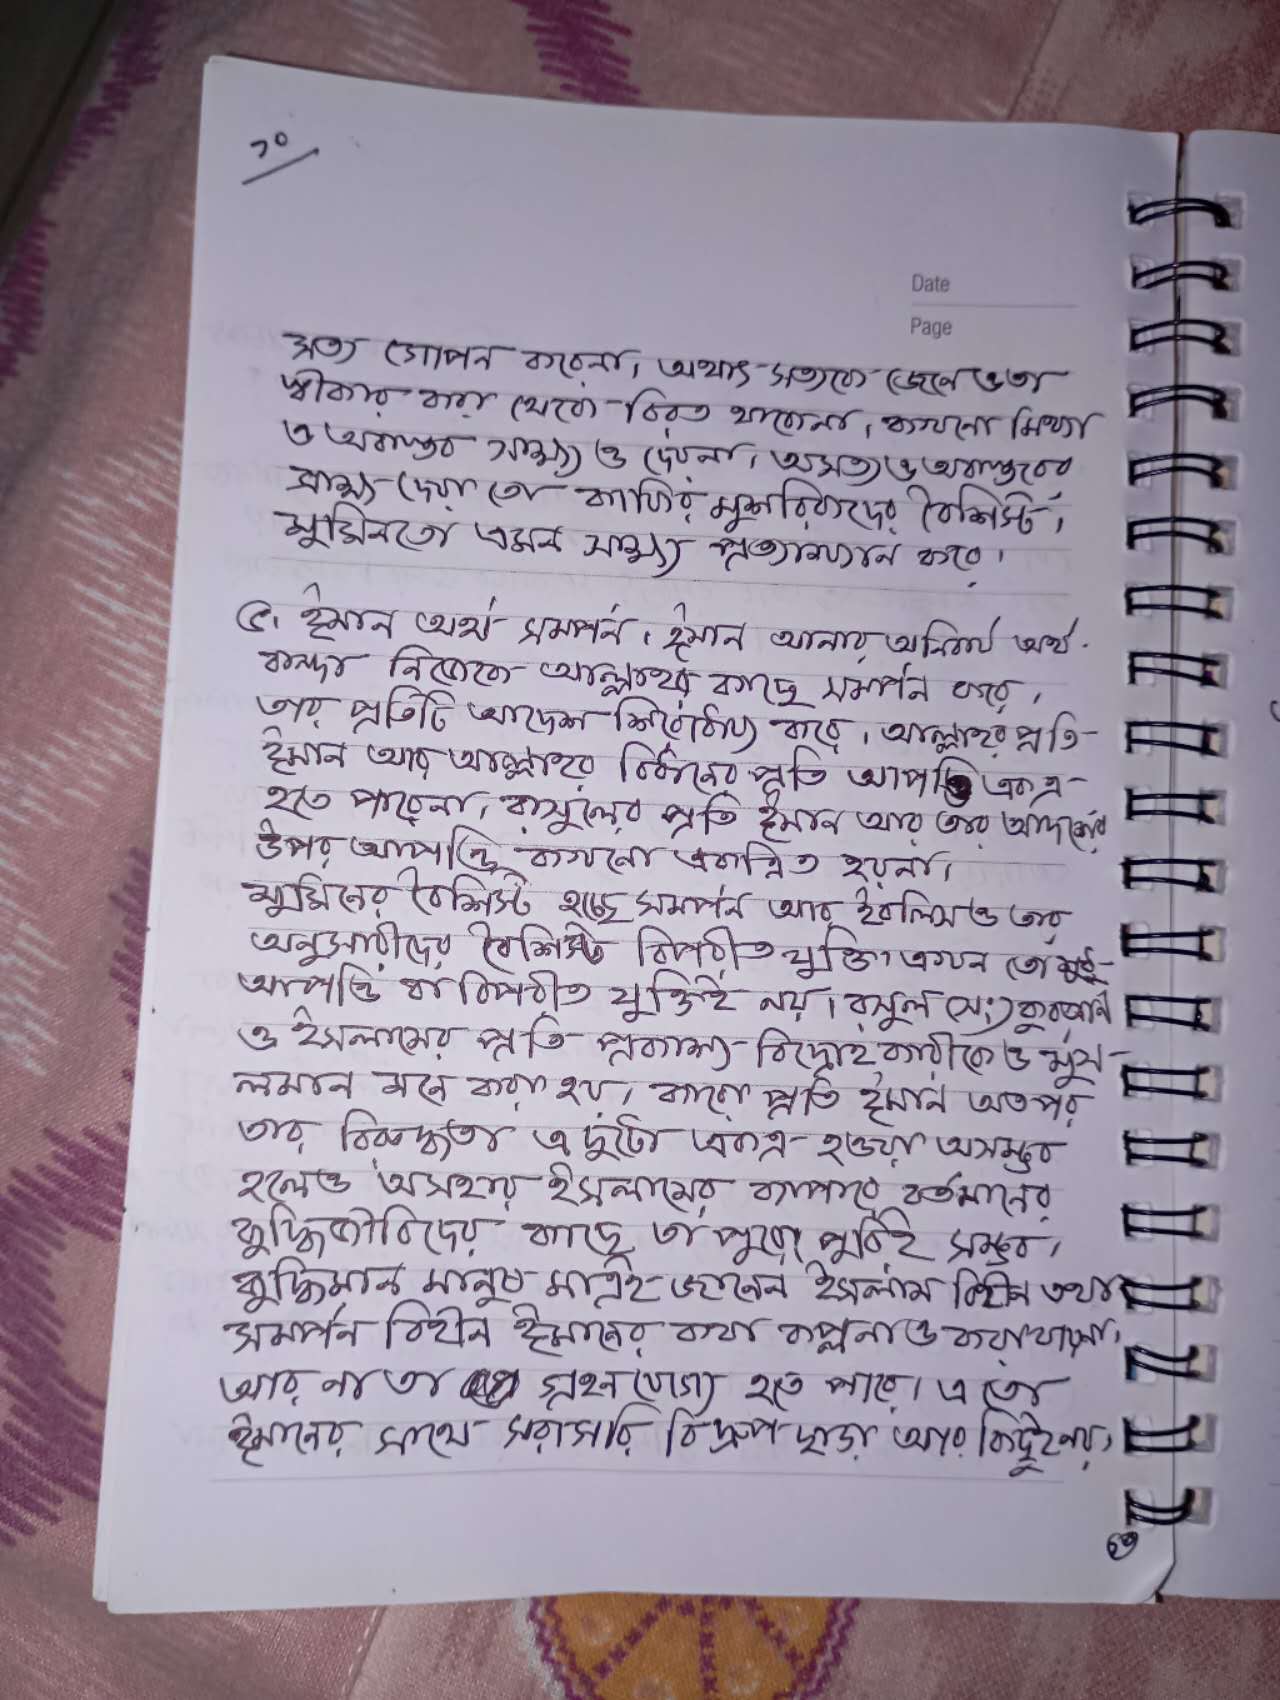 ১০
Date
Page
সত্য গোপন করেনা, অথাৎ সত্যকে জেনেও তা
স্বীকার করা থেকে বিরত থাকেনা, কখনো মিথ্যা
ও অবাস্তব সাক্ষ্য ও দেয়না, অসত্য ও অবাস্তবের
সাক্ষ্য দেয়া তো কাফির মুশরিকদের বৈশিস্ট,
মুমিনতো এমন সাক্ষ্য প্রত্যাখ্যান করে।
৫। ঈমান অর্থ সমর্পন। ঈমান আনার অনিবার্য অর্থ
বান্দা নিজেকে আল্লাহর কাছে সমর্পন করে,
তার প্রতিটি আদেশ শিরোর্ধায্য করে। আল্লাহর প্রতি
ঈমান আর আল্লাহর বিধানের প্রতি আপত্তি একত্র
হতে পারেনা, রাসুলের প্রতি ঈমান আর তার আদর্শের
উপর আপত্তি কখনো একত্রিত হয়না।
মুমিনের বৈশিস্ট হচ্ছে সমর্পন আর ইবলিস ও তার
অনুসারীদের বৈশিস্ট বিপরীত যুক্তি। এখন তো শুধু
আপত্তি বা বিপরীত যুক্তিই নয়। রাসুল (স:) কুরআন
ও ইসলামের প্রতি প্রকাশ্য বিদ্রোহ কারীকেও মুস-
লমান মনে করা হয়, কারো প্রতি ঈমান অতপর
তার বিরুদ্ধতা এ দুটো একত্র হওয়া অসম্ভব
হলেও অসহায় ইসলামের ব্যাপারে বর্তমানের
বুদ্ধিজীবিদের কাছে তা পুরো পুরিই সম্ভব,
বুদ্ধিমান মানুষ মাত্রই জানেন ইসলাম বিহীন তথা
সমর্পন বিহীন ঈমানের কথা কল্পনাও করাযায়না,
আর না তা গ্রহনযোগ্য হতে পারে। এ তো
ঈমানের সাথে সরাসরি বিদ্রুপ ছাড়া আর কিছুইনয়,